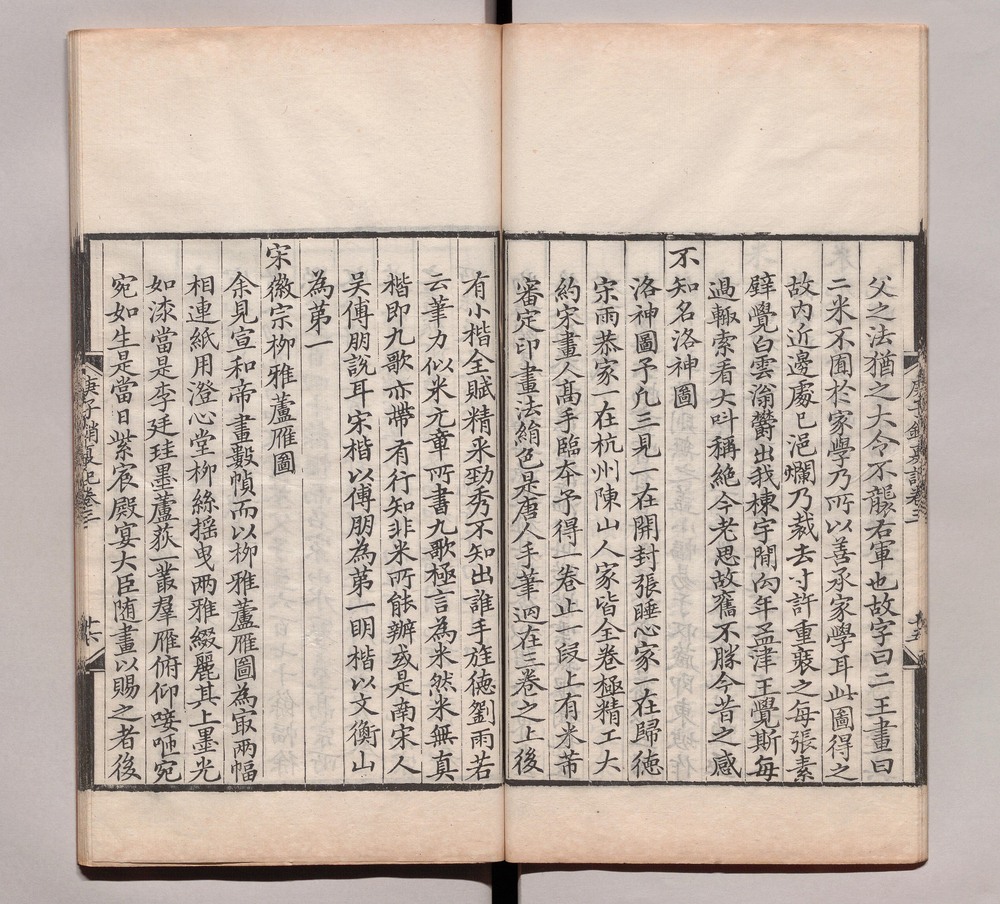 父之法猶之大令不襲右軍也故字曰二王畫曰
二米不囿於家學乃所以善承家學耳此圖得之
故內近邊處已浥爛乃裁去寸許重裝之每張素
壁覺白雲滃欎出我棟宇間向年孟津王覺斯每
過輙索看大叫稱絕今老思故舊不勝今昔之感
不知名洛神圖
洛神圖予凡三見一在開封張睡心家一在歸徳
宋雨恭家一在杭州陳山人家皆全卷極精工大
約宋畫人髙手臨夲予得一卷止一段上有米芾
審定印畫法絹色是唐人手筆迥在三卷之上後
有小楷全賦精采勁秀不知出誰手旌徳劉雨若
云筆力似米元章所書九歌極言為米然米無真
楷即九歌亦帶有行知非米所能辦或是南宋人
吴傅朋說耳宋楷以傅朋為第一明楷以文衡山
為第一
宋徽宗柳雅蘆雁圖
余見宣和帝畫數幀而以柳雅蘆雁圖為㝡兩幅
相連紙用澄心堂柳絲揺曵兩雅綴麗其上墨光
如漆當是李廷珪墨蘆荻一叢羣雁俯仰唼咂宛
宛如生是當日紫宸殿宴大臣随畫以賜之者後
庚子銷夏記卷三
廿六